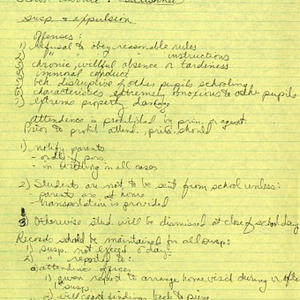 Susp. & expulsion
Offenses:
1) refusal to obey reasonable rules
2) " " " " instructions
3) chronic, willful absence or tardiness
immoral conduct
beh. disruptive of other pupils schooling
characteristics extremely obnoxious to other pupils
extreme property damage
Attendance is prohibited by prin. or
Prior to prohib. attend. prin. should
1) notify parents
- orally if poss.
- in writing in all cases
2) Students are not to be sent from school unless:
- parents are at home
- transportation is provided
3) Otherwise stud. will be dismissed at close of school day
Records should be maintained for all susp:
1) susp. not exceed 6 days
2) " reported to:
a) attendance
1) given report to arrange home visit during or after
susp.
2) will report findings back to prin.